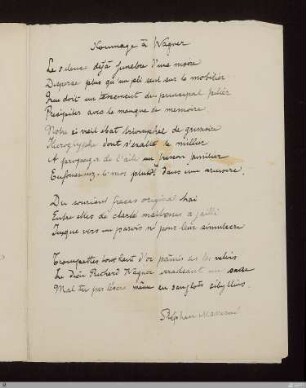 Hommage à Wagner
Le silence déjà funèbre d'une moire
Dispose plus qu'un pli seul sur le mobilier
Que doit un tassement du principal pilier
Précipiter avec le manque de mémoire.
Notre si vieil ébat triomphal du grimoire
Hiéroglyphes dont s'exalte le millier
A propager de l'aile un frisson familier
Enfouissez-le moi plutôt dans une armoire.
Du souriant fracas originel haï
Entre elles de clartés maîtresses a jailli
Jusque vers un parvis né pour leur simulacre
Trompettes tout haut d'or pâmé sur les vélins
Le Dieu Richard Wagner irradiant un sacre
Mal tu par l'encre même en sanglots sibyllins.
Stéphane Mallarmé